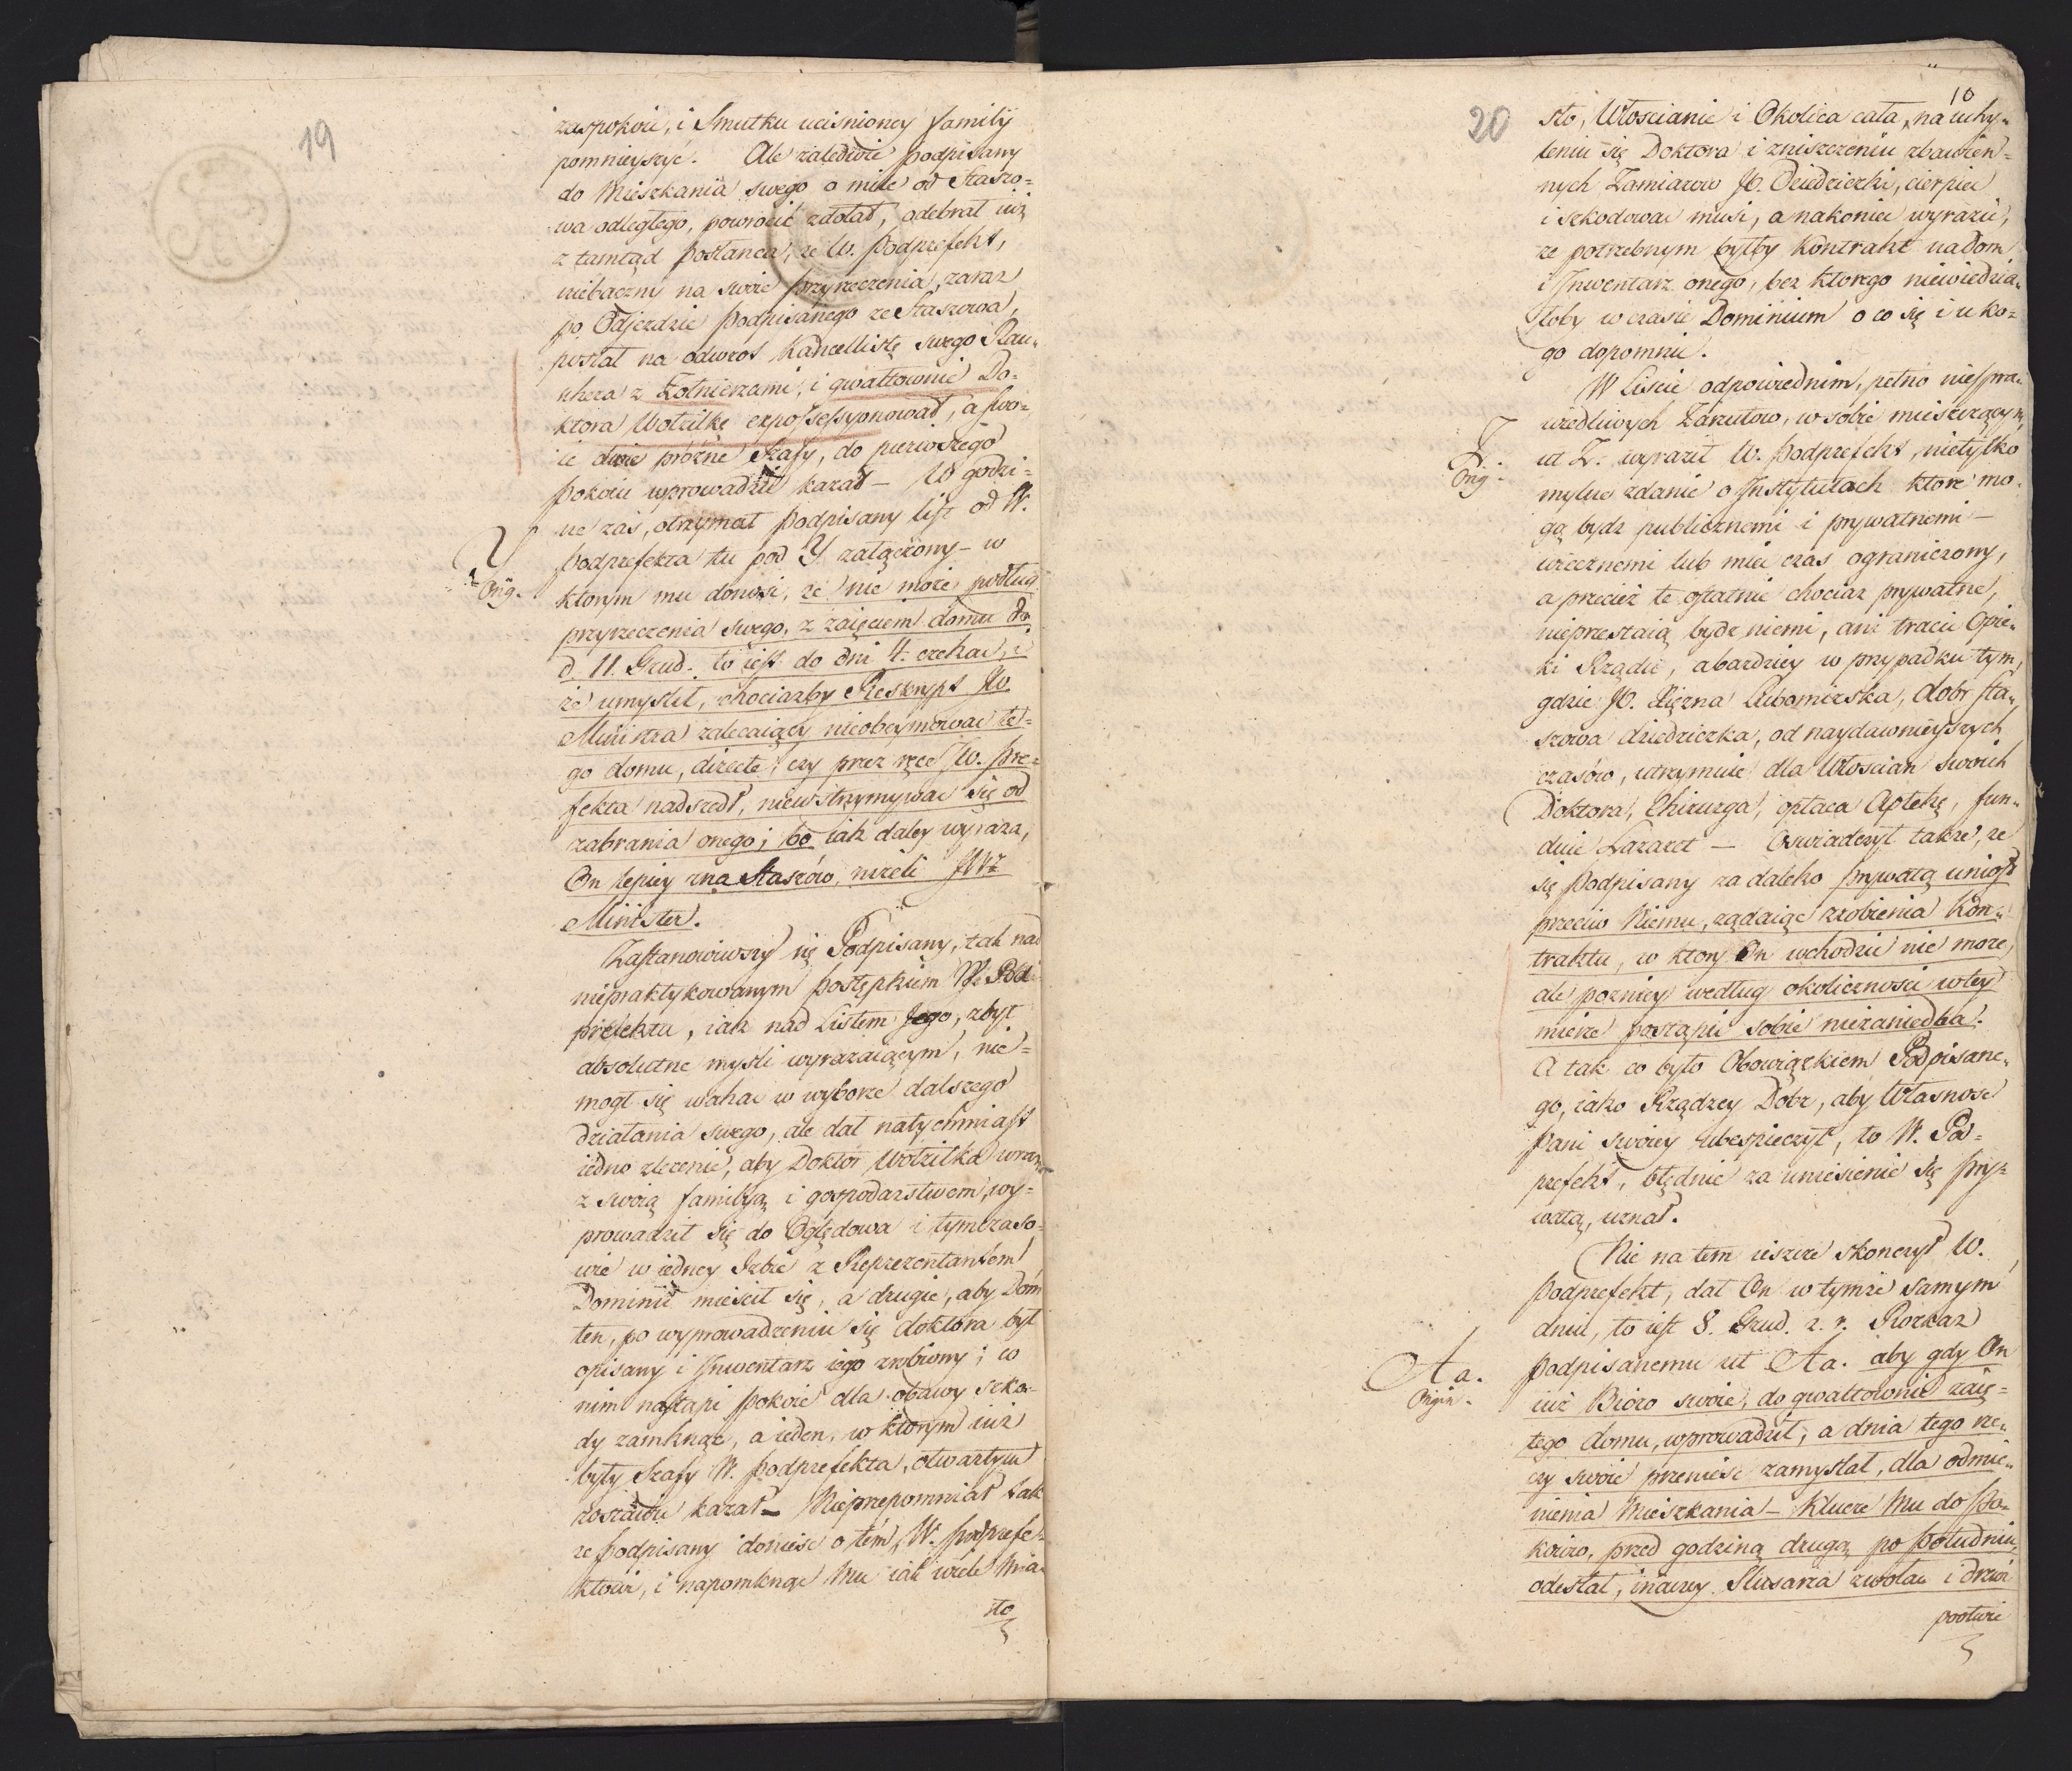 19
zaspokoić, i Smutku uciśnioney familij
pomnieyszyć. Ale zaledwie podpisany
do Mieszkania swego o mile od Staszo=
wa odległego, powrocić zdołał, odebrał iuż
z tamtąd posłańca, że W. Podprefekt,
niebaczny na swoie przyrzeczenia, zaraz
po Odjezdzie podpisanego ze Staszowa,
posłał na odwrot Kancellistę swego Rau=
chera z Żołnierzami, i gwałtownie Do=
ktora Wotzilkę expossessyonował, a swo=
ie dwie próżne Szafy, do pierwszego
Pokoiu wprowadzić kazał — W godzi=
nę zaś, otrzymał podpisany list od W.
Podprefekta tu pod Y. załączony — w
Y
Orig.
ktorym mu donosi, że nie może podług
przyrzeczenia swego, z zaięciem domu do
d. 11. Grud. to iest do dni 4. czekać, i
że umyślił, chociażby Reskrypt JW.
Ministra zalecaiący nieobeymować te=
go domu, directe, czy przez ręce JW. Pre=
fekta nadszedł, niewstrzymywać się od
zabrania onego; bo iak daley wyraża,
On lepiey zna Staszów, niżeli JWż
Minister.
Zastanowiwszy się Podpisany, tak nad
niepraktykowanym postępkiem W. Pod
prefekta, iak nad Listem Jego, zbyt
absolutne myśli wyrażaiącym, nie=
mogł się wahać w wyborze dalszego
działania swego, ale dał natychmiast
iedno zlecenie, aby Doktor Wotzilka wraz
z swoią familyą i gospodarstwem, wy=
prowadził się do Oględowa i tymczaso=
wie w iedney Izbie z Reprezentantem
Dominii mieścił się, a drugie, aby Dom
ten, po wyprowadzeniu się doktora był
opisany i Inwentarz iego zrobiony; co
nim nastąpi pokoie dla obawy szko=
dy zamknąć, a ieden, w ktorym iuż
były Szafy W. Podprefekta, otwartym
zostawić kazał — Nieprzepomniał tak
że podpisany donieść o tém W. podprefe=
ktowi, i napomknąć Mu iak wiele Mia=
sto
10
20
sto, Włościanie i Okolica cała, na uchy=
leniu się Doktora i zniszczeniu zbawien=
nych Zamiarow JO. Dziedziczki, cierpieć
i szkodować musi, a nakoniec wyrazić,
że potrzebnym byłby Kontrakt na dom
i Inwentarz onego, bez ktorego niewiedzia=
łoby w czasie Dominium o co się i u ko=
go dopomnieć.
W Liście odpowiednim, pełno niespra=
wiedliwych Zarzutów, w sobie mieszczącym,
Z.
Orig.
ut Z. wyraził W. Podprefekt, nietylko
mylne zdanie o Instytutach ktore mo=
gą bydź publicznemi i prywatnemi —
wiecznemi lub mieć czas ograniczony,
a przecież te ostatnie chociaż prywatne,
nieprzestaią bydź niemi, ani tracić Opie=
ki Rządu, a bardziey w przypadku tym,
gdzie JO. Xiężna Lubomirska, dobr Sta=
szowa dziedziczka, od naydawnieyszych
czasów, utrzymuie dla Włościan swoich
Doktora, Chirurga, opłaca Aptekę, fun=
duie Lazaret — Oświadczył także, że
się podpisany za daleko prywatą uniosł
przeciw Niemu, żądaiąc zrobienia Kon=
traktu, w ktory On wchodzić nie może,
ale pozniey według okoliczności w tey
mierze postąpić sobie niezaniedba.
A tak co było Obowiązkiem Podpisane=
go, iako Rządzcy Dobr, aby Własność
Pani swoiey ubespieczył, to W. Pod=
prefekt, błędnie za uniesienie się pry=
watą, uznał.
Nie na tem ieszcze skonczył W.
Podprefekt, dał On w tymże samym
dniu, to iest 8. Grud. z. r. Rozkaz
Aa.
Origin.
podpisanemu ut Aa. aby gdy On
iuż Bióro swoie, do gwałtownie zaię=
tego domu, wprowadził, a dnia tego rze=
czy swoie przenieść zamyślał, dla odmie=
nienia Mieszkania — Klucze Mu do Po=
koiów, przed godziną drugą po południu,
odesłał, inaczey Slusarza zwołać i drzwi
pootwie